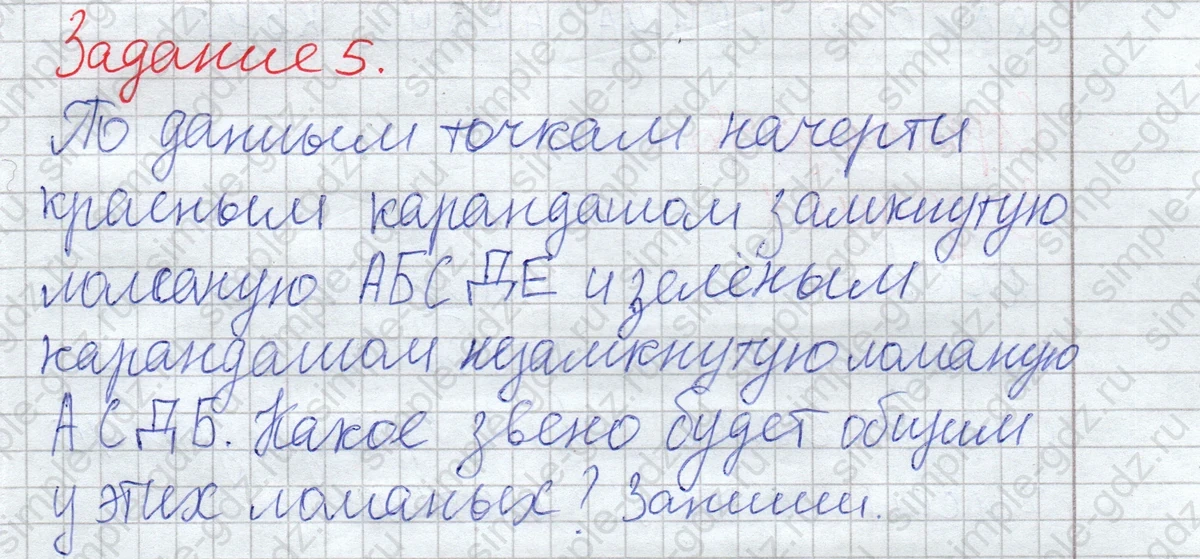 Задание 5.
По данным точкам начерти
красным карандашом замкнутую
ломаную АБСДЕ и зелёным
карандашом незамкнутую ломаную
АСДБ. Какое звено будет общим
у этих ломаных? Запиши.